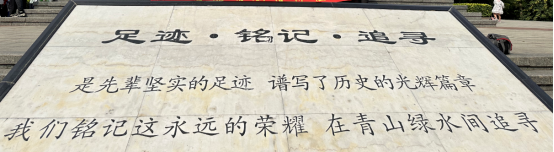 足迹·铭记·追寻
是先辈坚实的足迹 谱写了历史的光辉篇章
我们铭记这永远的荣耀 在青山绿水间追寻